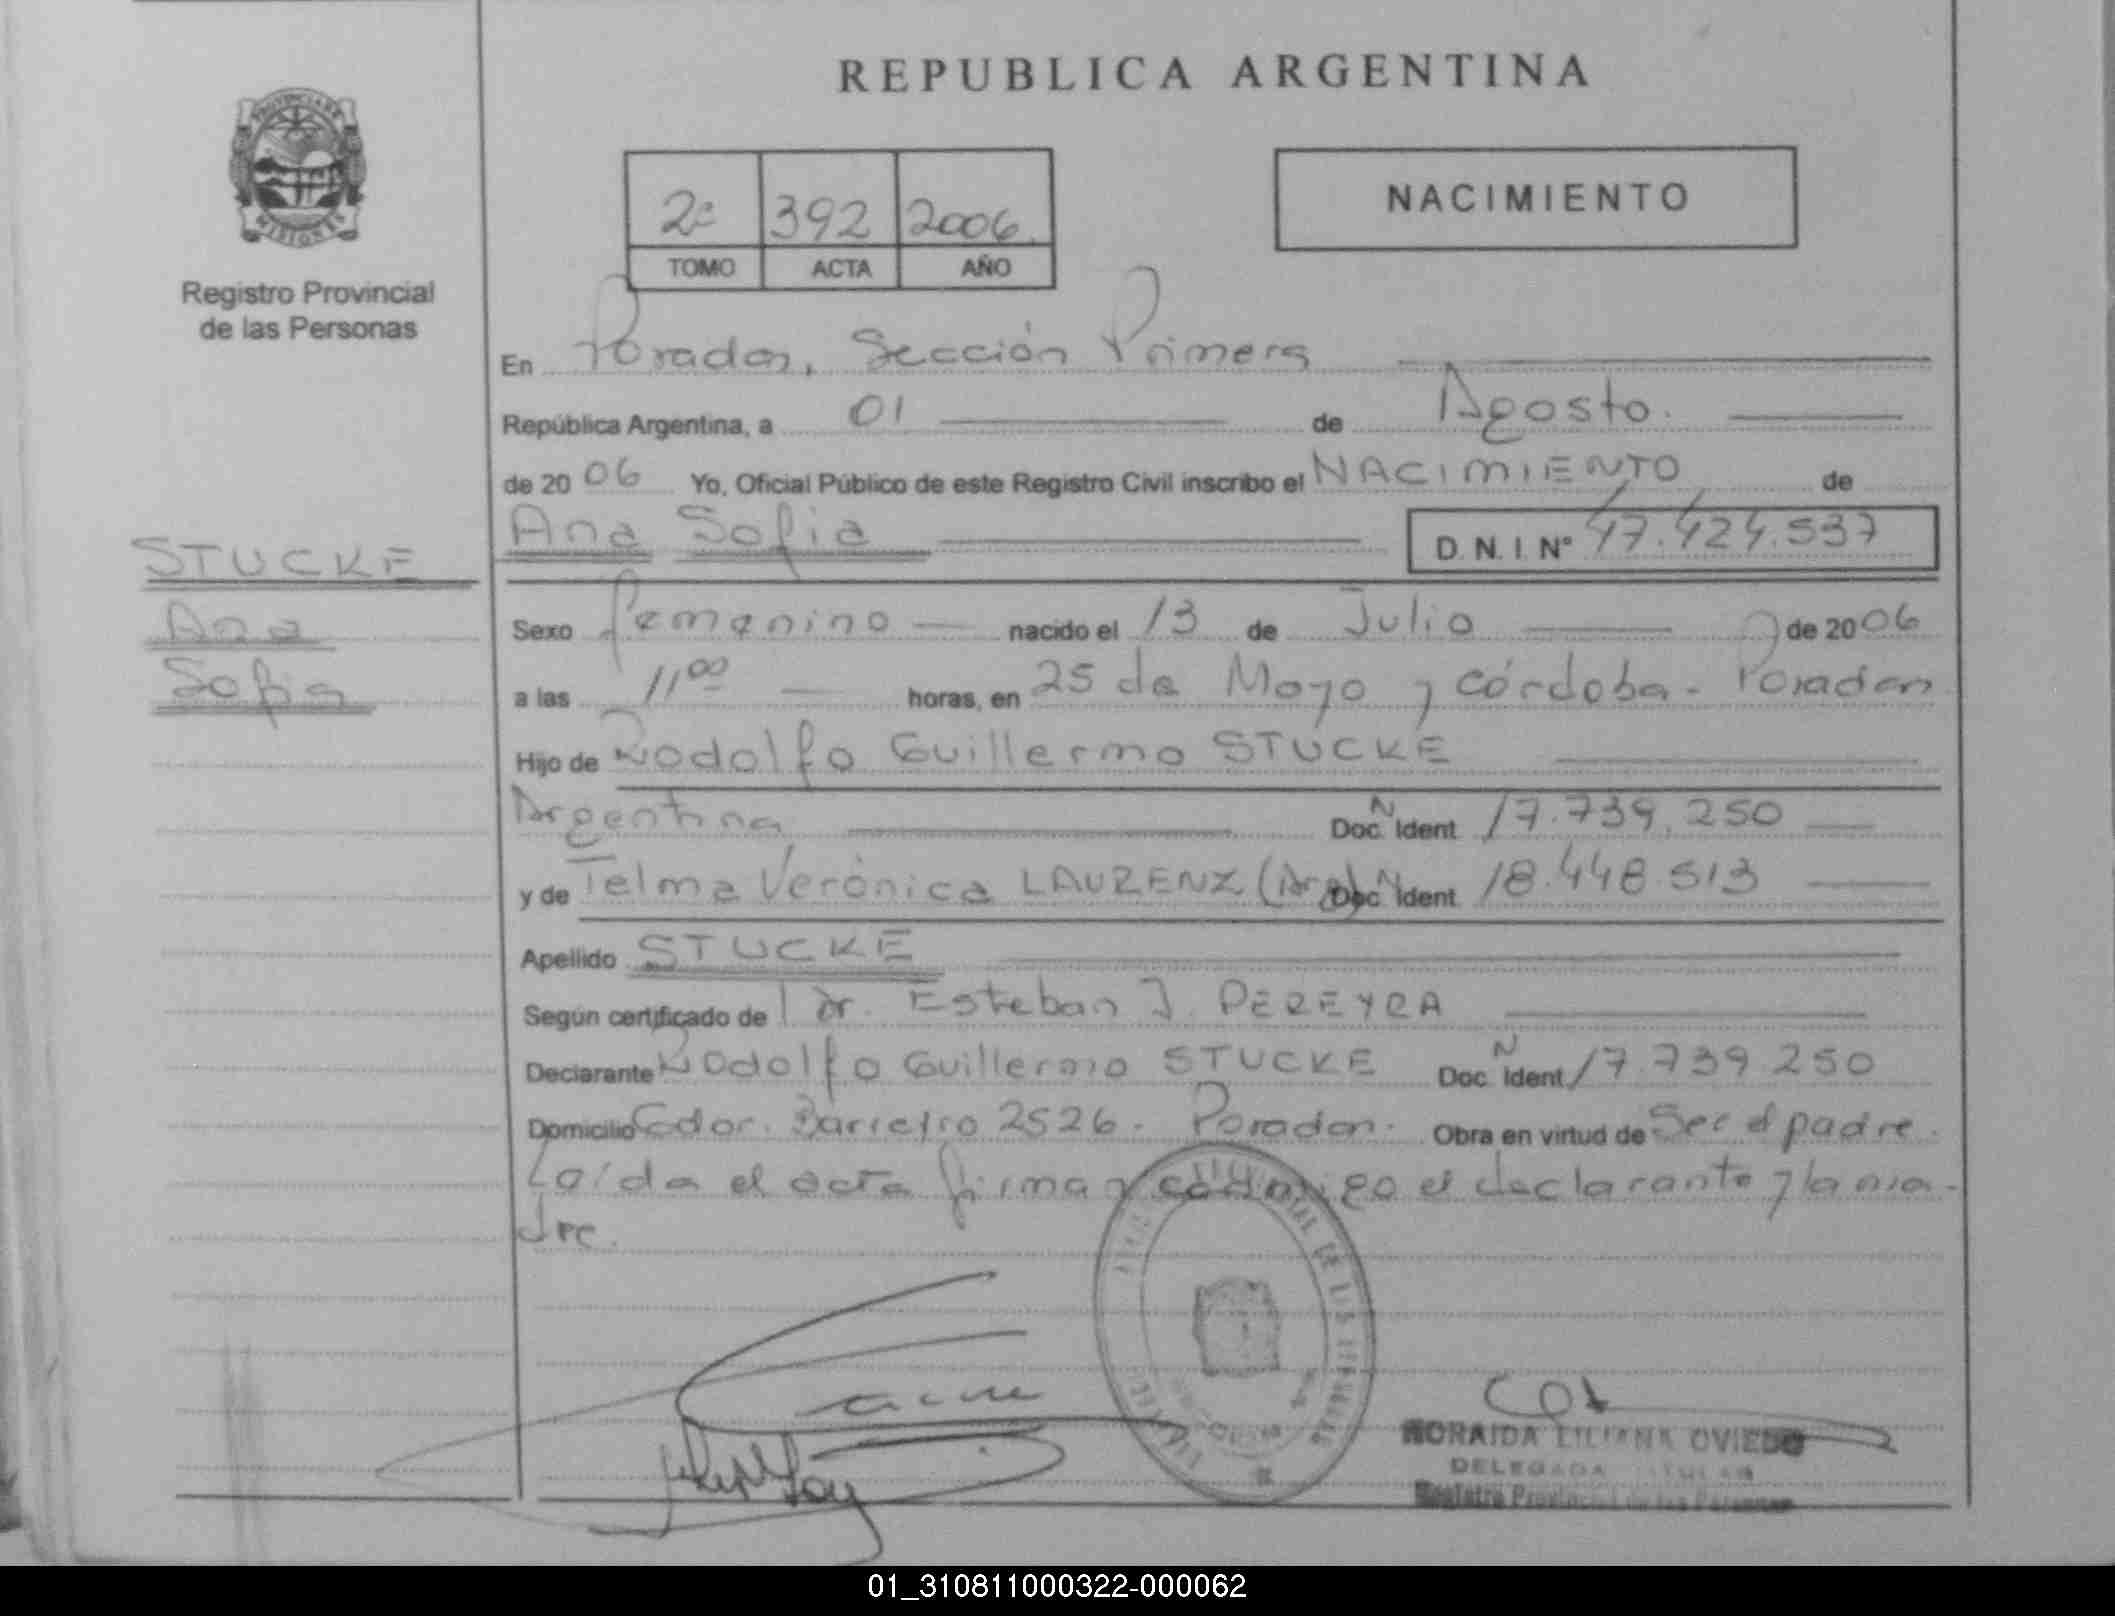 REPUBLICA ARGENTINA
PROVINCIA DE
MISIONES
Registro Provincial
de las Personas
2º 392 2006
TOMO ACTA AÑO
NACIMIENTO
En Posadas, Sección Primera
República Argentina, a 01 de Agosto.
de 2006 Yo, Oficial Público de este Registro Civil inscribo el NACIMIENTO de
STUCKE
Ana
Sofia
Ana Sofia D.N.I. Nº 47.424.537
Sexo femenino nacido el 13 de Julio de 2006
a las 11 00 horas, en 25 de Mayo y córdoba - Posadas
Hijo de Rodolfo Guillermo STUCKE
Argentina Doc. N Ident 17.739.250
y de Telma Verónica LAURENZ (Arg) Doc. N Ident 18.448.513
Apellido STUCKE
Según certificado de Dr. Esteban J. PEREYRA
Declarante Rodolfo Guillermo STUCKE Doc. N Ident 17.739.250
Domicilio Cdor. Barreyro 2526. Posadas. Obra en virtud de Ser el padre.
Leída el acta firma conmigo el declarante y la ma-
dre.
DE LAS PERSONAS
NORAIDA LILIANA OVIEDO
DELEGADA TITULAR
Registro Provincial de las Personas
01_310811000322-000062